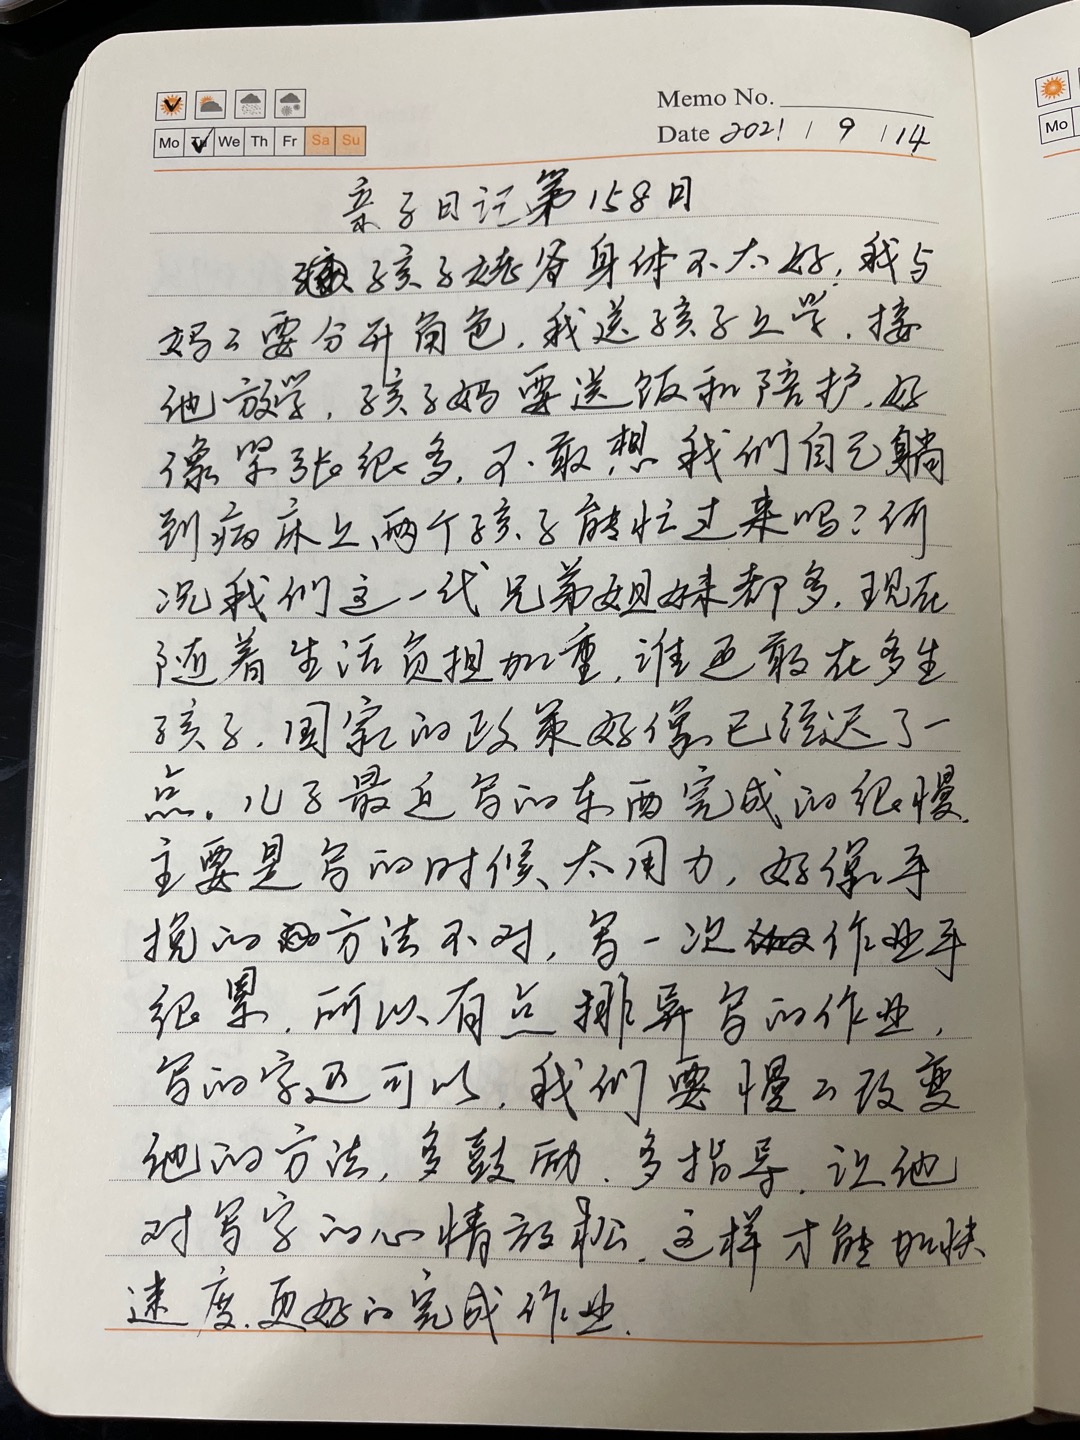 Memo No.
Mo Tu We Th Fr Sa Su
Date 2021 / 9 / 14
亲子日记第158日
孩子姥爷身体不太好,我与
妈妈要分开角色,我送孩子上学,接
他放学,孩子妈要送饭和陪护,好
像紧张很多,不敢想我们自己躺
到病床上,两个孩子能忙过来吗?何
况我们这一代兄弟姐妹都多,现在
随着生活负担加重,谁还敢在多生
孩子,国家的政策好像已经迟了一
点。儿子最近写的东西完成的很慢,
主要是写的时候太用力,好像手
挽的方法不对,写一次作业手
很累,所以有点排异写的作业,
写的字还可以,我们要慢慢改变
他的方法,多鼓励,多指导,让他
对写字的心情放松,这样才能加快
速度,更好的完成作业.
Mo